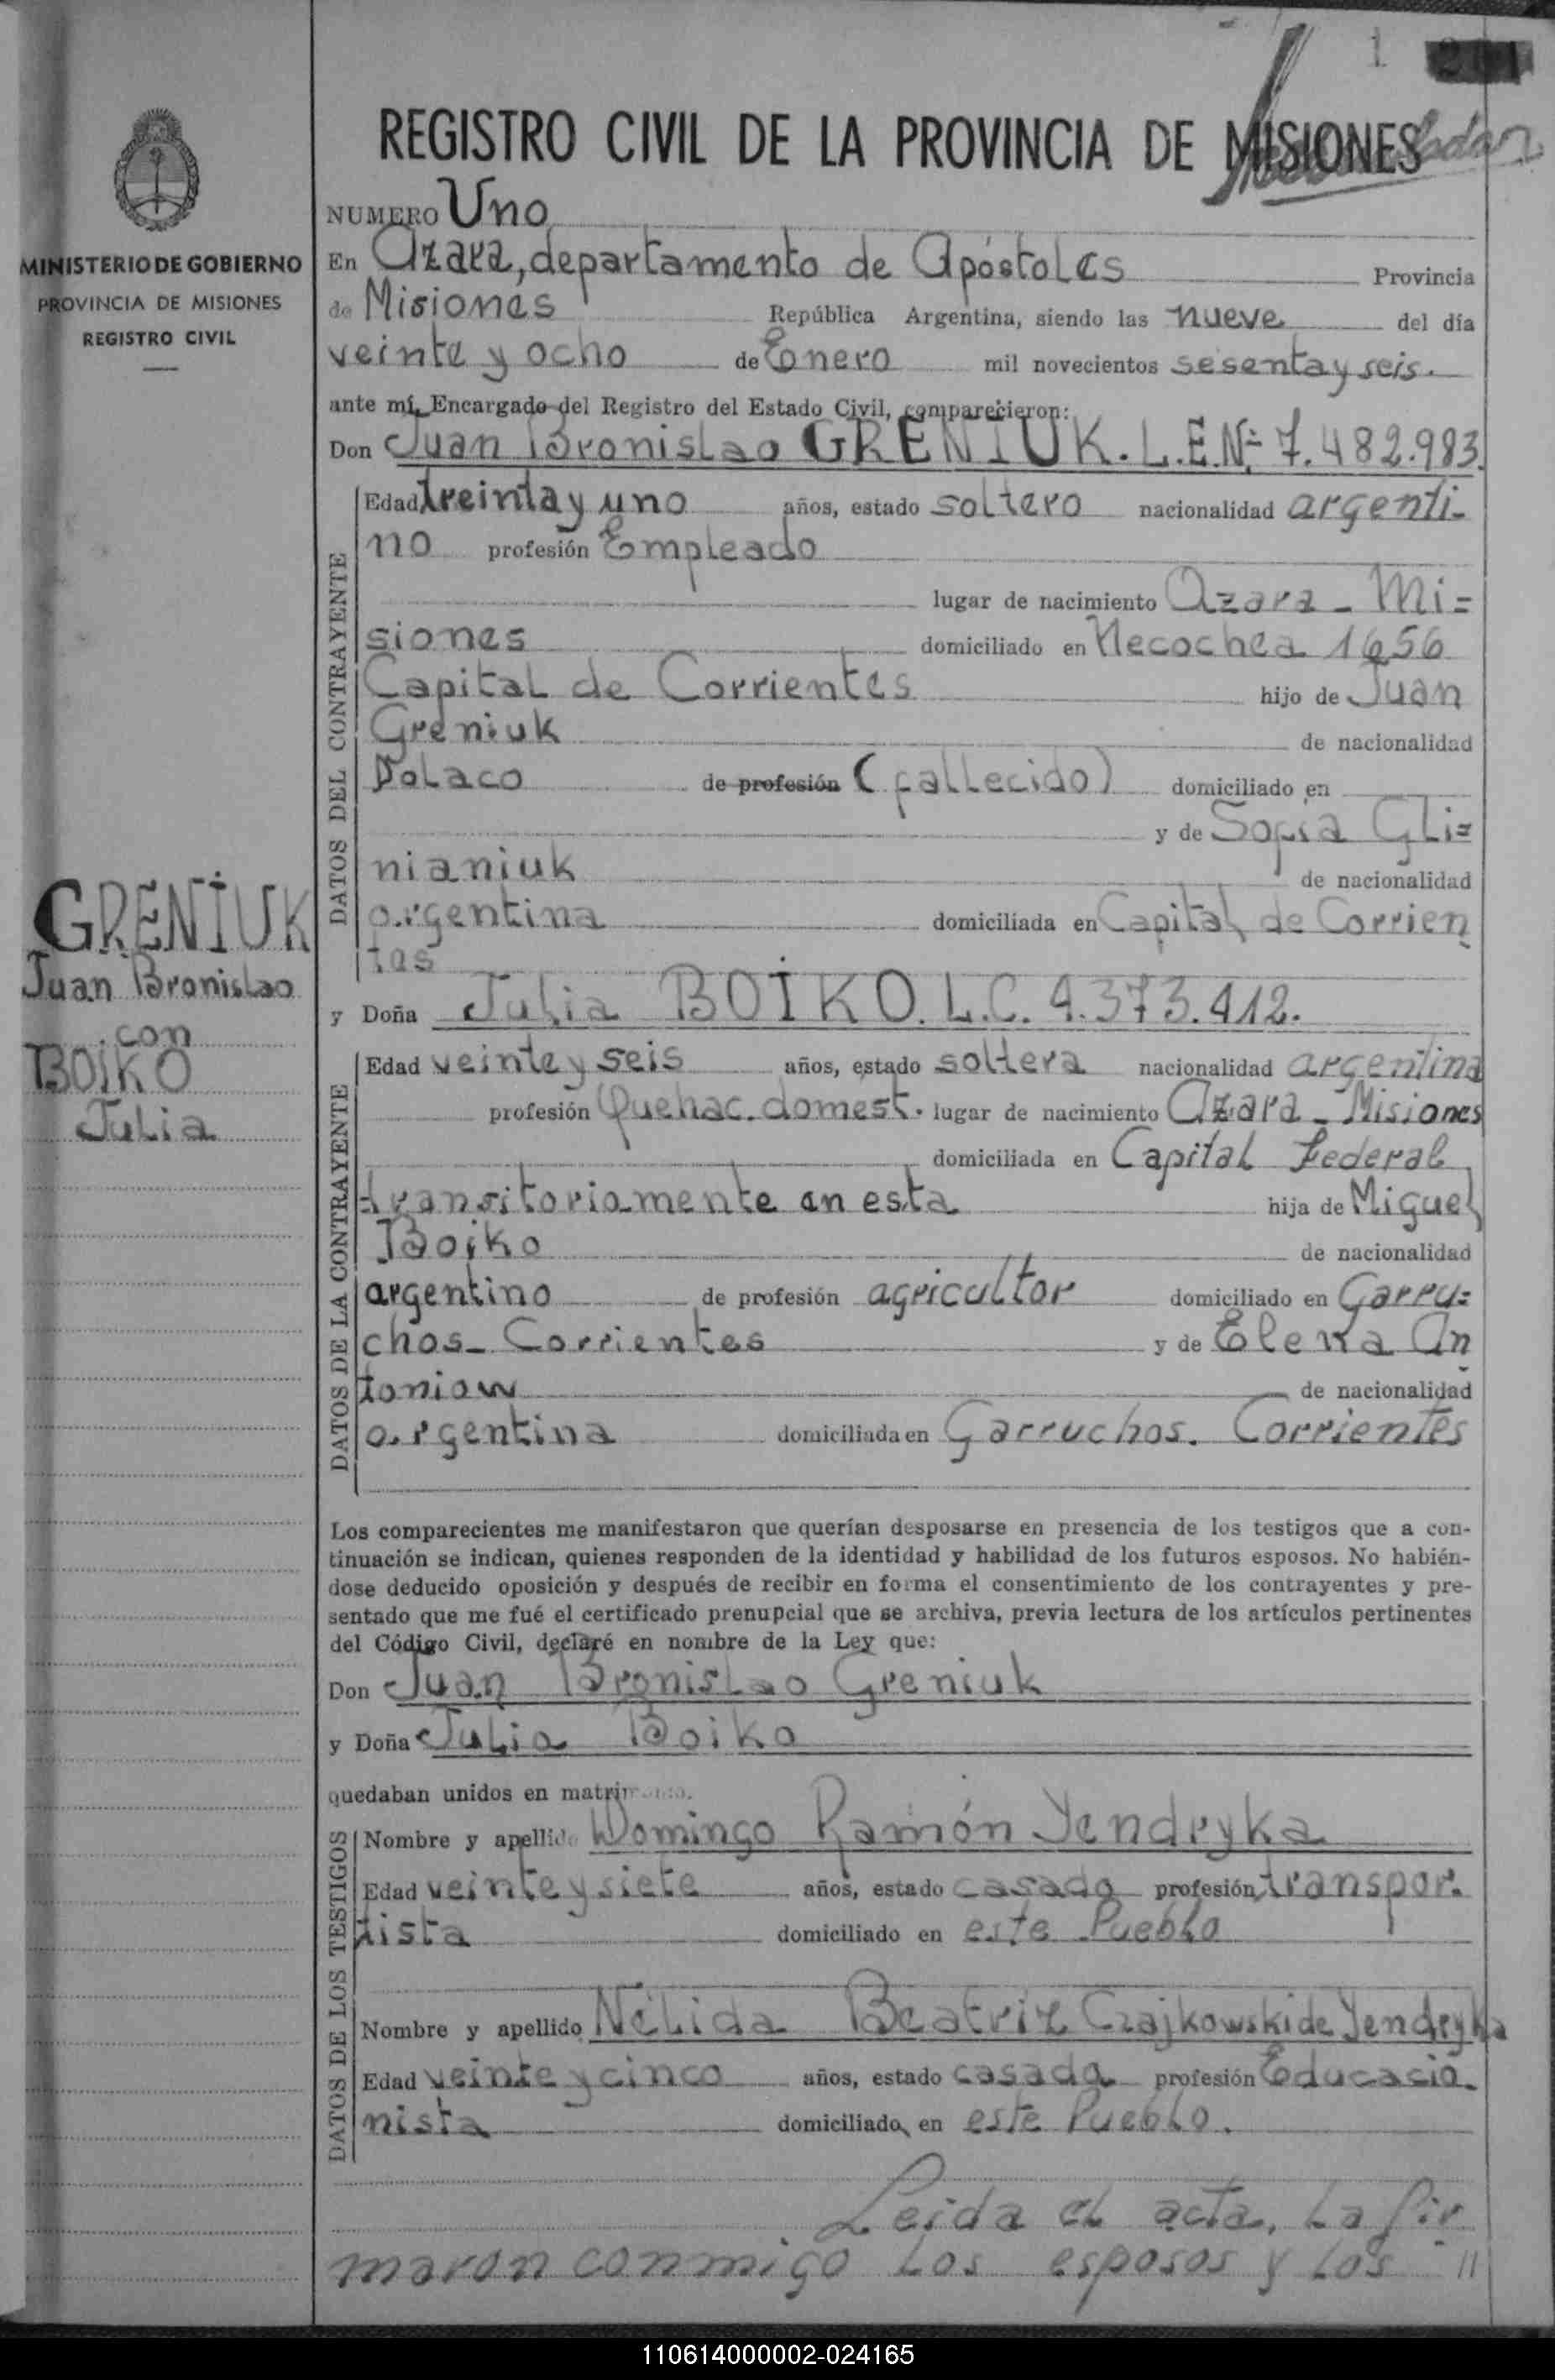 1
REGISTRO CIVIL DE LA PROVINCIA DE MISIONES
MINISTERIO DE GOBIERNO
PROVINCIA DE MISIONES
REGISTRO CIVIL
GRENIUK
Juan Bronislao
con
BOIKO
Julia
NUMERO Uno
En Azara, departamento de Apóstoles Provincia
de Misiones República Argentina, siendo las nueve del día
veinte y ocho de Enero mil novecientos sesenta y seis.
ante mí, Encargado del Registro del Estado Civil, comparecieron:
Don Juan Bronislao GRENIUK. L.E.Nº 7.482.983.
DATOS DEL CONTRAYENTE
Edad treinta y uno años, estado soltero nacionalidad argenti-
no profesión Empleado
lugar de nacimiento Azara - Mi=
siones domiciliado en Necochea 1656
Capital de Corrientes hijo de Juan
Greniuk de nacionalidad
Polaco de profesión (fallecido) domiciliado en
y de Sofía Gli=
nianiuk de nacionalidad
argentina domiciliada en Capital de Corrien
tes
y Doña Julia BOIKO. L.C. 4.373.412.
DATOS DE LA CONTRAYENTE
Edad veinte y seis años, estado soltera nacionalidad argentina
profesión Quehac. domest. lugar de nacimiento Azara - Misiones
domiciliada en Capital Federal
transitoriamente en esta hija de Miguel
Boiko de nacionalidad
argentino de profesión agricultor domiciliado en Garru=
chos - Corrientes y de Elena An
toniow de nacionalidad
argentina domiciliada en Garruchos. Corrientes
Los comparecientes me manifestaron que querían desposarse en presencia de los testigos que a con-
tinuación se indican, quienes responden de la identidad y habilidad de los futuros esposos. No habién-
dose deducido oposición y después de recibir en forma el consentimiento de los contrayentes y pre-
sentado que me fué el certificado prenupcial que se archiva, previa lectura de los artículos pertinentes
del Código Civil, declaré en nombre de la Ley que:
Don Juan Bronislao Greniuk
y Doña Julia Boiko
quedaban unidos en matrimonio.
DATOS DE LOS TESTIGOS
Nombre y apellido Domingo Ramón Yendryka
Edad veinte y siete años, estado casado profesión transpor-
tista domiciliado en este Pueblo
Nombre y apellido Nélida Beatriz Czajkowski de Yendryka
Edad veinte y cinco años, estado casada profesión Educacio-
nista domiciliado en este Pueblo.
Leida el acta, la fir
maron conmigo los esposos y los //
110614000002-024165